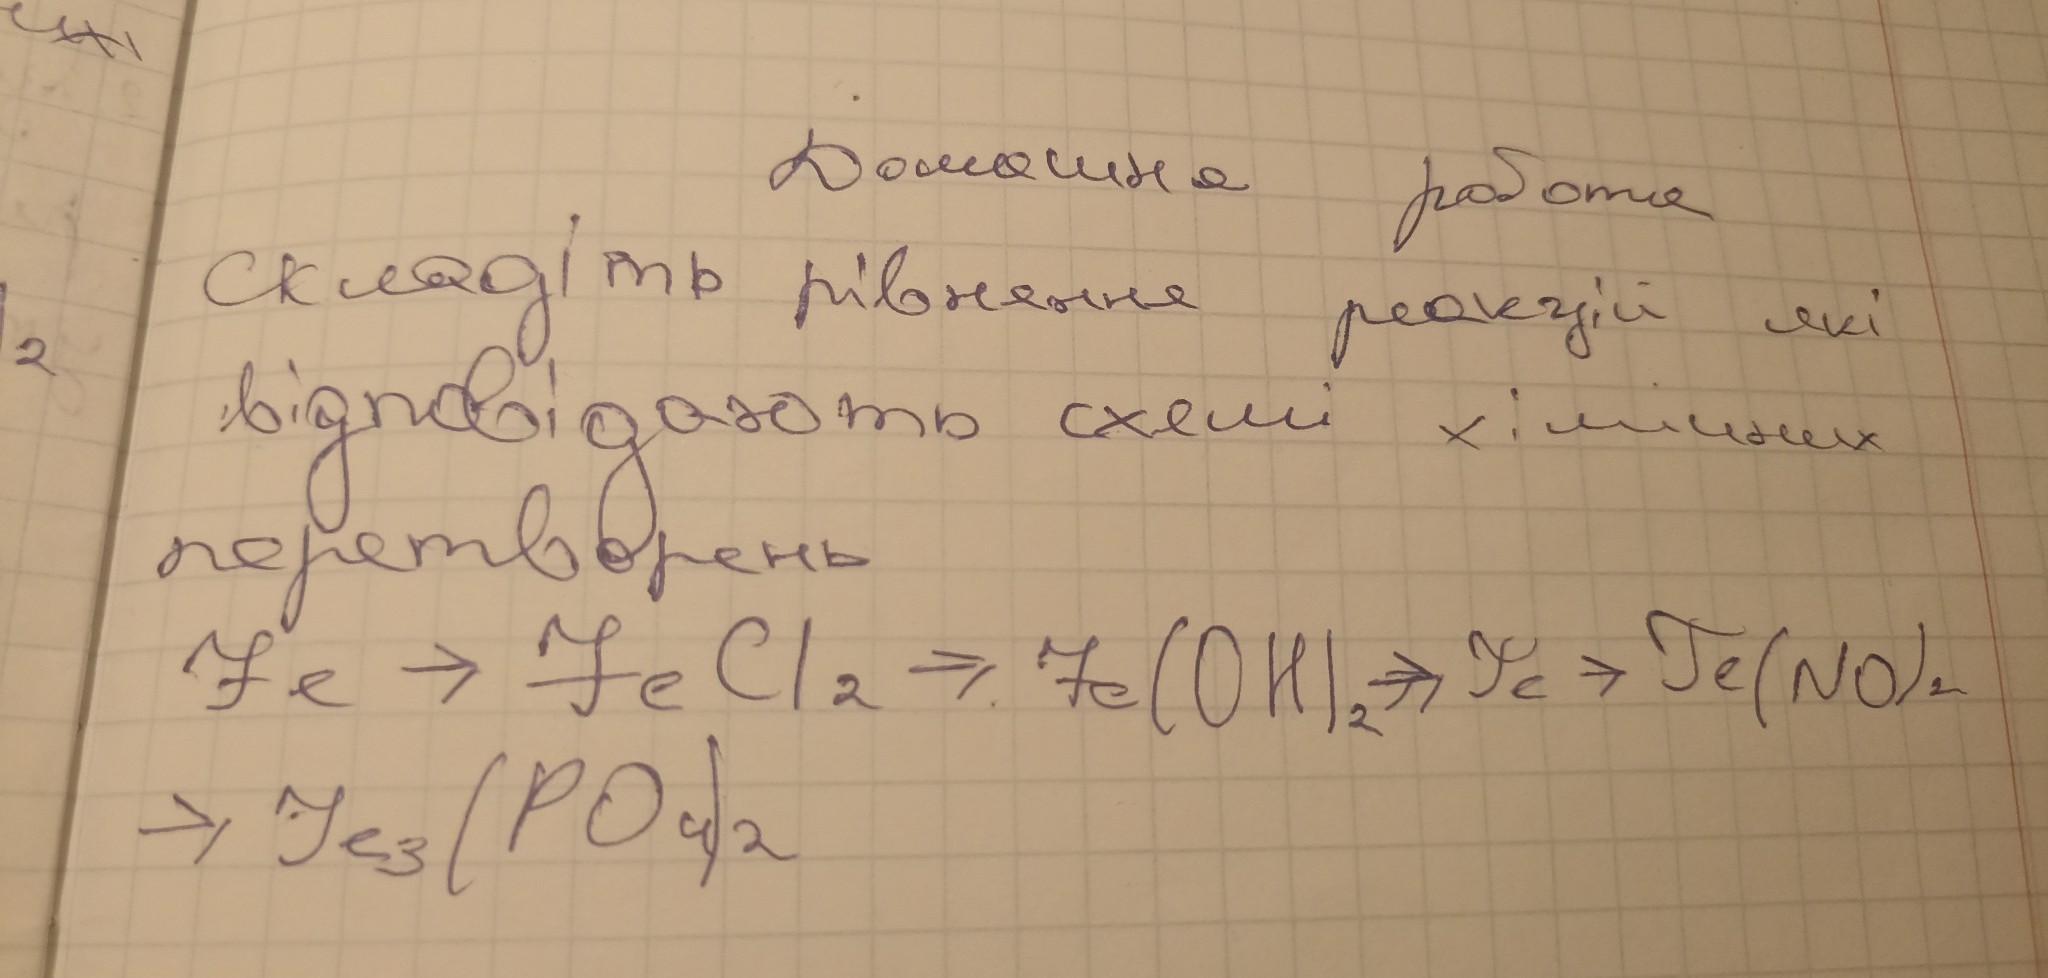 Домашня робота
Складіть рівняння реакцій які
відповідають схемі хімічних
перетворень
Fe → FeCl₂ → Fe(OH)₂ → Fe → Fe(NO)₂
→ Fe₃(PO₄)₂
2